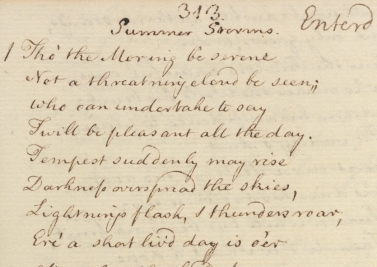 313.
Summer Storms.
Enterd
1 Tho' the Morning be serene
Not a threatning cloud be seen;
Who can undertake to say
Twill be pleasant all the day.
Tempest suddenly may rise
Darkness overspread the skies,
Lightnings flash, & thunders roar,
Ere a short liv'd day is o'er